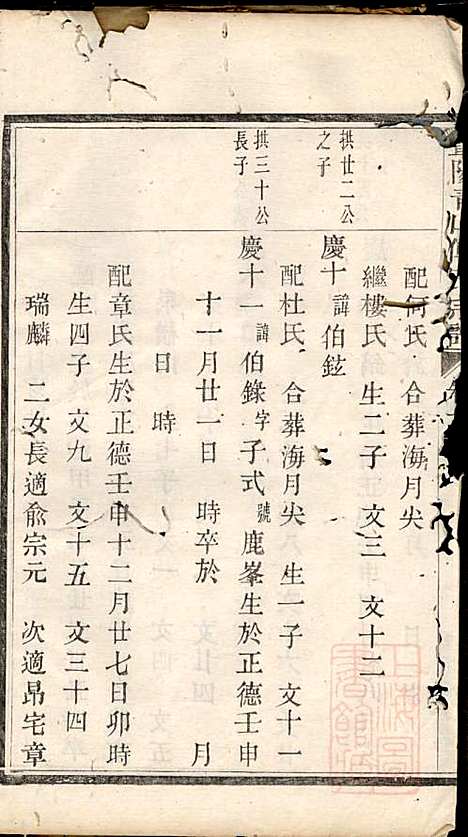 配何氏 合葬海月尖
繼樓氏 生二子 文三 文十二
拱廿二公
之子
慶十 諱伯鉉
配杜氏 合葬海月尖 生一子 文十一
拱三十公
長子
慶十一 諱伯錄 字子式 號鹿峯生於正德壬申
十一月廿一日 時卒於 月
日 時
配章氏生於正德壬申十二月廿七日卯時
生四子 文九 文十五 文三十四
瑞麟 二女長適俞宗元 次適昂宅章
上海圖書館藏